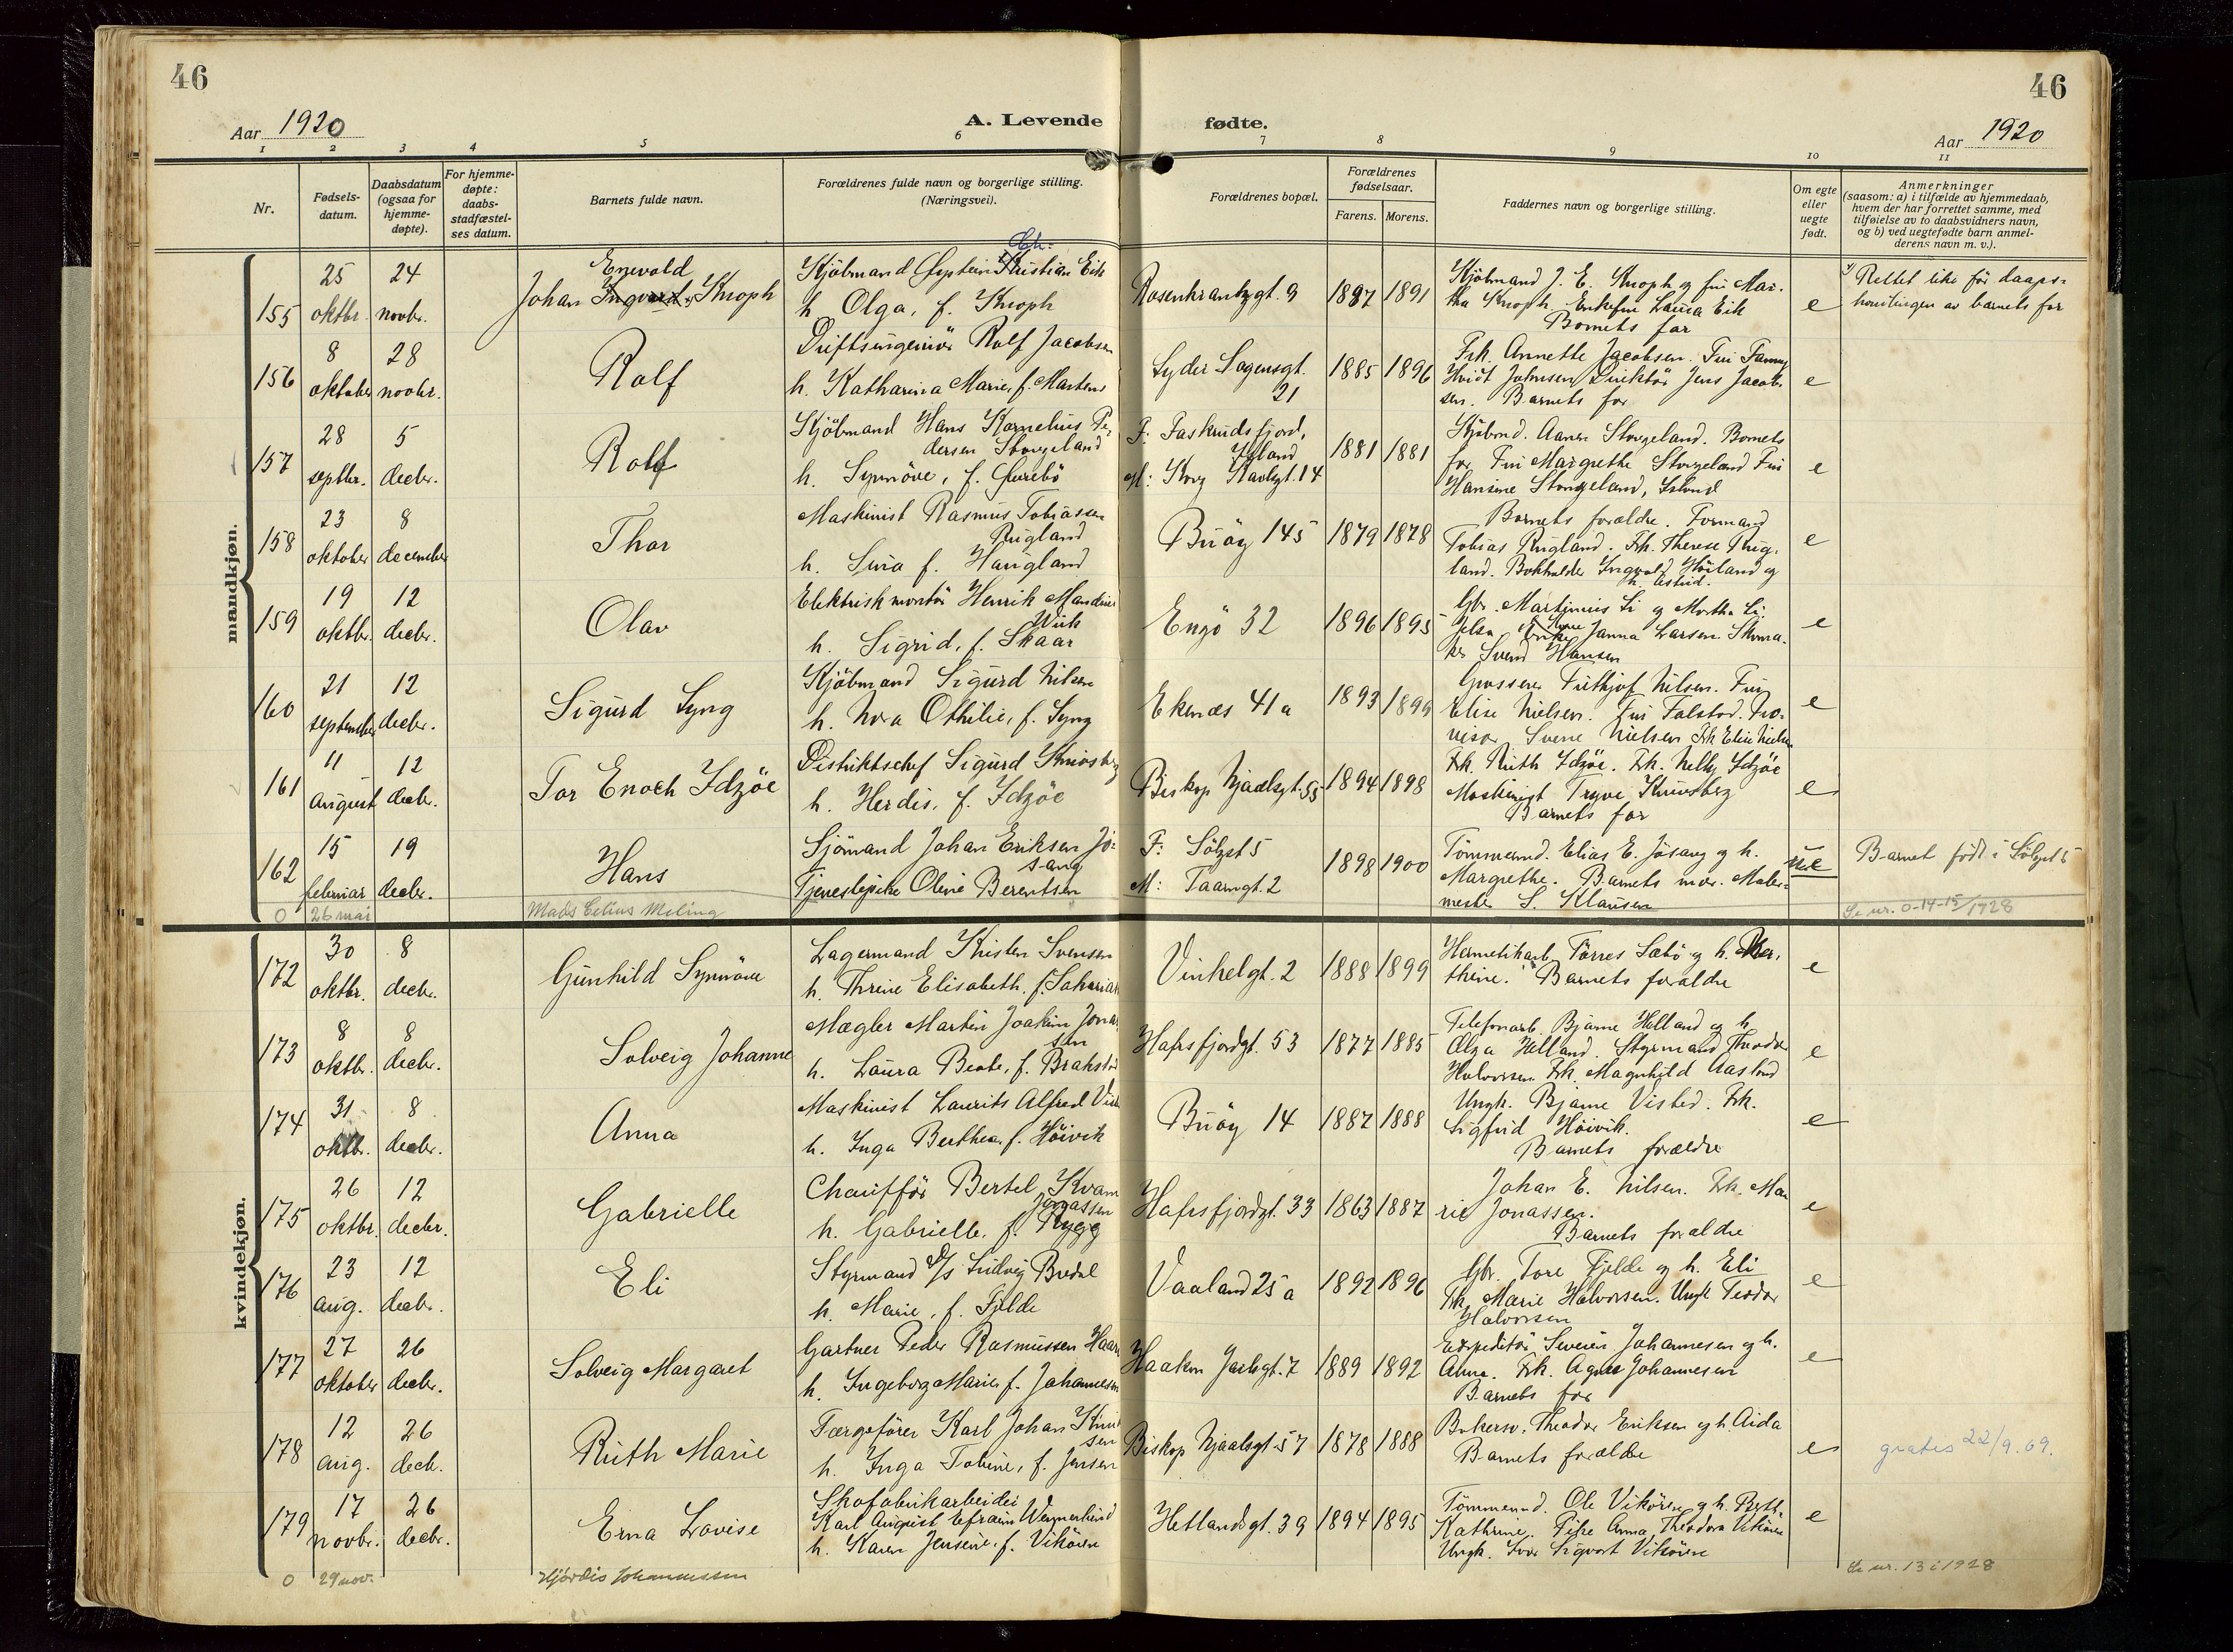 46
46
Aar 1920
A. Levende
fødte.
Aar 1920
1 2 3 4 5 6 7 8 9 10 11
Nr.
Fødsels-
datum.
Daabsdatum
(ogsaa for
hjemme-
døpte).
For hjemme-
døpte:
daabs-
stadfæstel-
ses datum.
Barnets fulde navn.
Forældrenes fulde navn og borgerlige stilling.
(Næringsvei).
Forældrenes bopæl.
Forældrenes
fødselsaar.
Farens. Morens.
Faddernes navn og borgerlige stilling.
Om egte
eller
uegte
født.
Anmerkninger
(saasom: a) i tilfælde av hjemmedaab,
hvem der har forrettet samme, med
tilføielse av to daabsvidners navn,
og b) ved uegtefødte barn anmel-
derens navn m. v.).
mandkjøn.
155
25
oktbr.
24
novbr.
Enevold
Johan Ingvard Knoph
Ch.
Kjöbmand Eystein Kristian Eik
h. Olga, f. Knoph
Rosenkrantzgt. 9
1887 1891
Kjöbmand J. E. Knoph og fru Mar-
tha Knoph. Enkefru Laura Eik
Barnets far
e
Rettet like för daaps-
handlingen av barnets far
156
8
oktober
28
novbr.
Rolf
Driftsingeniör Rolf Jacobsen
h. Katharina Marie, f. Martens
Lyder Sagensgt.
21
1885 1896
Frk. Annette Jacobsen. Fru Fanny
Hvidt Johnsen, Direktör Jens Jacob-
sen. Barnets far
e
157
28
septbr.
5
decbr.
Rolf
Kjöbmand Hans Kornelius Pe-
dersen Stangeland
h. Synnöve, f.
F: Faskrudsfjord,
Island
M: Kong Haralsgt. 14
1881 1881
Kjöbmd. Aanen Stangeland. Barnets
far Fru Margrethe Stangeland Fru
Hansine Stangeland, Island
e
158
23
oktober
8
december
Thor
Maskinist Rasmus Tobiassen
Rugland
h. Sina f. Haugland
Buöy 145
1879 1878
Barnets forældre. Formand
Tobias Rugland. Frk. Therese Rug-
land. Bokholder Ingvald Höiland og
h. Astrid.
e
159
19
oktbr.
12
decbr.
Olav
Elektriskmontör Henrik Mandius
Wiik
h. Sigrid, f. Skaar
Engö 32
1896 1895
Gbr. Martinius Li og Martha Li,
Jelsa Enke Janna Larsen Skoma-
ker Svend Hansen
e
160
21
september
12
decbr.
Sigurd Lyng
Kjöbmand Sigurd Nilsen
h. Nora Othilie, f. Lyng
Ekenæs 41 a
1893 1899
Grosserer Fridthjof Nilsen. Fru
Elise Nielsen. Fru Falstad. Pro-
visor Sverre Nielsen Frk Elise Nielsen
e
161
11
august
12
decbr.
Tor Enoch Idzöe
Distriktschef Sigurd Knivsberg
h. Herdis, f. Idzöe
Biskop Njaalsgt. 55
1894 1898
Frk. Ruth Idzöe. Frk. Nelly Idzöe
Maskinist Trygve Knivsberg
Barnets far
e
162
15
februar
19
decbr.
Hans
Sjömand Johan Eriksen Jö-
sang
Tjenestepike Oline Berentsen
F: Sölvgt 5
M: Taarngt. 2
1898 1900
Tömmermd. Elias E. Jösang og h.
Margrethe. Barnets mor. Maler-
mester S. Klausen
ue
Barnet födt i Sölvgt 5
0 26 mai
Mads Celius Meling
Se nr. 0-14-15/1928
kvindekjøn.
172
30
oktbr.
8
decbr.
Gunhild Synnöve
Lagermand Kristen Svensen
h. Thrine Elisabeth, f. Sakarias
Vinkelgt. 2
1888 1899
Hermetikarb. Törres Sæbö og h. Ber-
thine. Barnets forældre
e
173
8
oktbr.
8
decbr.
Solveig Johanne
Mægler Martin Joakim Jonas
sen
h. Laura Beate, f. Brakstad
Hafrsfjordgt. 53
1877 1885
Telefonarb. Bjarne Helland og h.
Olga Helland. Styrmand Theodor
Halvorsen Frk. Magnhild Aasland
e
174
31
oktbr.
8
decbr.
Anna
Maskinist Laurits Alfred Vist
h. Inga Berthea, f. Höivik
Buöy 14
1887 1888
Ungk. Bjarne Visted. Frk.
Sigfrid Höivik.
Barnets forældre
e
175
26
oktbr.
12
decbr.
Gabrielle
Chaufför Bertel Kvam
Jonassen
h. Gabrielle, f. Rygg
Hafrsfjordgt. 33
1863 1887
Johan E. Nilsen. Frk. Ma
rie Jonassen.
Barnets forældre
e
176
23
aug.
12
decbr.
Eli
Styrmand D/s Ludvig Bredal
h. Marie, f. Fjelde
Vaaland 25 a
1892 1896
Gbr. Tore Fjelde og h. Eli
Frk. Marie Halvorsen. Ungk Teodor
Halvorsen
e
177
27
oktober
26
decbr.
Solveig Margaret
Gartner Peder Rasmussen Haar
h. Ingeborg Marie, f. Johannessen
Haakon Jarlsgt. 7
1889 1892
Expeditör Severin Johannesen og h.
Anna. Frk. Agnes Johannesen
Barnets far
e
178
12
aug.
26
decb.
Ruth Marie
Færgeförer Karl Johan Knut
sen
h. Inga Tobine, f. Jensen
Biskop Njaalsgt 57
1878 1888
Bokersv. Theodor Eriksen og h. Aida
Barnets forældre
e
gratis 22/9. 69.
179
17
novbr.
26
decbr.
Erna Lovise
Skofabrikarbeider
Karl August Efraim Wennerlund
h. Karen Jensine, f. Vikören
Hetlandsgt. 39
1894 1895
Tömmermd. Ole Vikören og h. Berth.
Kathrine. Pike Anna Theodora Vikören
Ungk. Ivar Sigvart Vikören
e
0 29 nov.
Hjördis Johannessen
Se nr. 13 i 1928